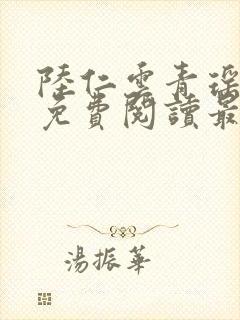 陸仁雲青瑤
免費閱讀最
湯振華